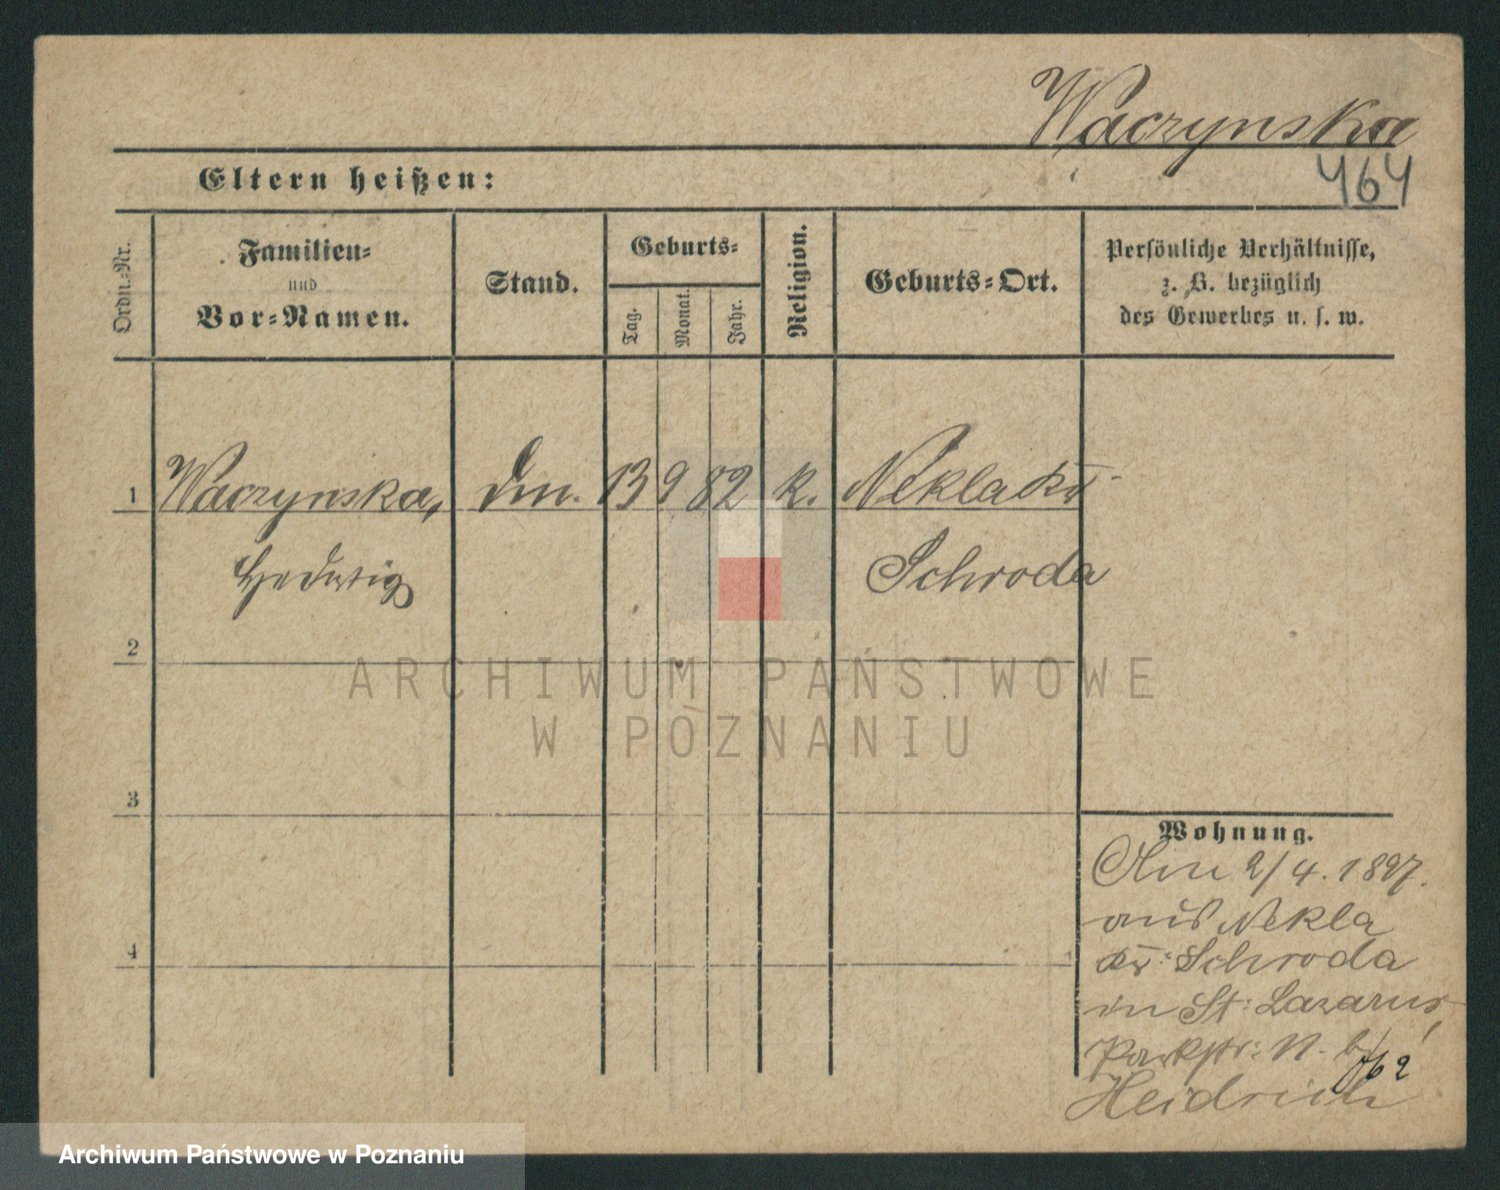 Waczynska
464
Eltern heißen:
Ordn.-Nr.
Familien-
und
Vor-Namen.
Stand.
Geburts-
Tag.
Monat.
Jahr.
Religion.
Geburts-Ort.
Persönliche Verhältnisse,
z. B. bezüglich
des Gewerbes u. s. w.
1 Waczynska, 13 9 82 k. Nekla Kr.
Hedwig Schroda
2
ARCHIWUM PAŃSTWOWE
W POZNANIU
3
Wohnung.
Am 2/4. 1897.
aus Nekla
4
Kr: Schroda
in St: Lazarus,
Parkstr: N. b/
Heidrich
Archiwum Państwowe w Poznaniu